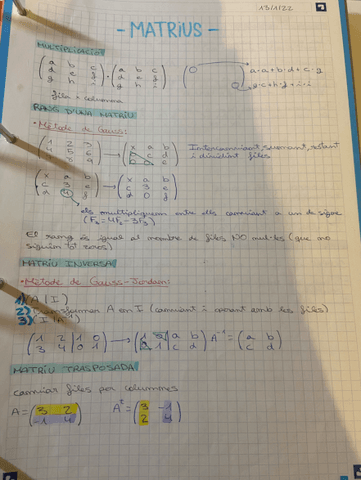 13/1/22
- MATRIUS -
MULTIPLICACIÓ
(a b c / d e f / g h i) · (a b c / d e f / g h i) (O a·a+b·d+c·g / O g·c+h·f+i·i)
fila x columna
RANG D'UNA MATRIU
• Mètode de Gauss:
→ (x a b / 0 c d / 0 0 e) Intercanviant, sumant, restant
i dividint files
(x a b / c 3 e / d 4 g) → (x a b / c 3 e / d 0 g)
els multipliquem entre ells canviant a un de signe
(F₃ = 4F₂ - 3F₃)
El rang és igual al nombre de files NO nul·les (que no
siguin tot zeros)
MATRIU INVERSA
• Mètode de Gauss-Jordan:
1) (A | I)
2) Transformem A en I (canviant i operant amb les files)
3) (I | A⁻¹)
(1 2 | 1 0 / 3 4 | 0 1) → (1 0 | a b / 0 1 | c d) A⁻¹ = (a b / c d)
MATRIU TRASPOSADA
canviar files per columnes
A = (3 2 / -1 4) Aᵗ = (3 -1 / 2 4)